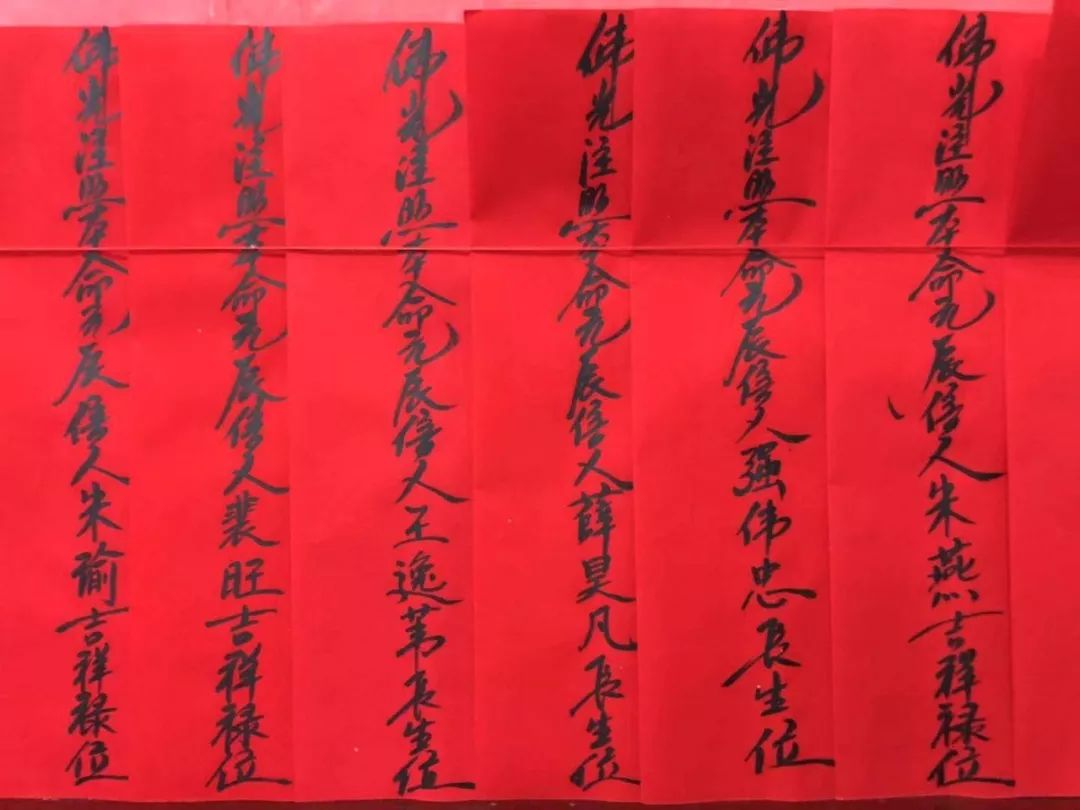 佛光注照本命元辰信人朱燕吉祥禄位
佛光注照本命元辰信人强伟忠长生位
佛光注照本命元辰信人薛昊凡长生位
佛光注照本命元辰信人王逸苇长生位
佛光注照本命元辰信人裴旺吉祥禄位
佛光注照本命元辰信人朱瑜吉祥禄位